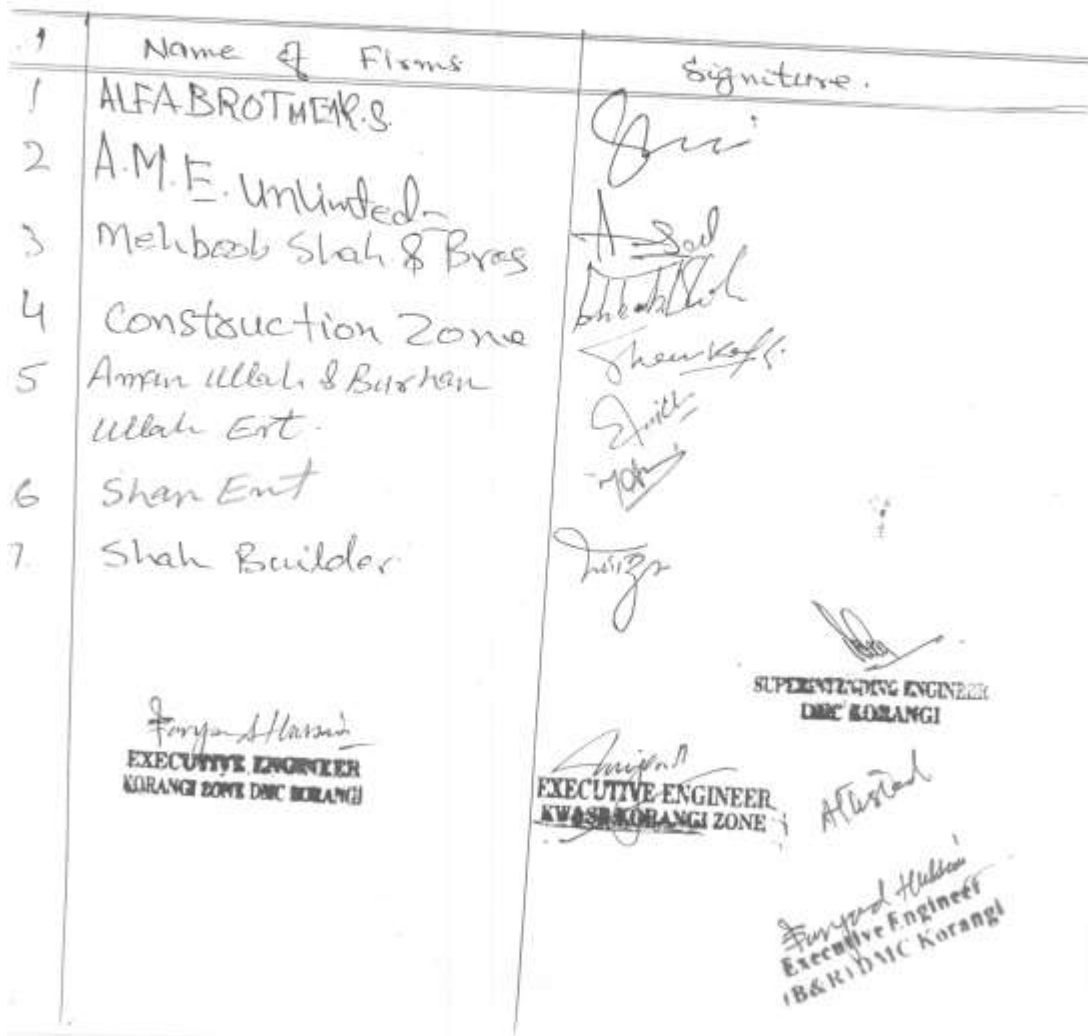 Name of Firms Signiture.
1 ALFA BROTHER.S.
2 A.M.E. Unlimted
3 Mehboob Shah & Bros
4 Construction Zone
5 Aman Ullah & Burhan
Ullah Ent.
6 Shan Ent
7. Shah Builder
SUPERINTENDING ENGINEER
DMC KORANGI
EXECUTIVE ENGINEER
KORANGI ZONE DMC KORANGI
EXECUTIVE ENGINEER
KW&SB KORANGI ZONE
Attested
Faryad Hussain
Executive Engineer
(B&R) DMC Korangi